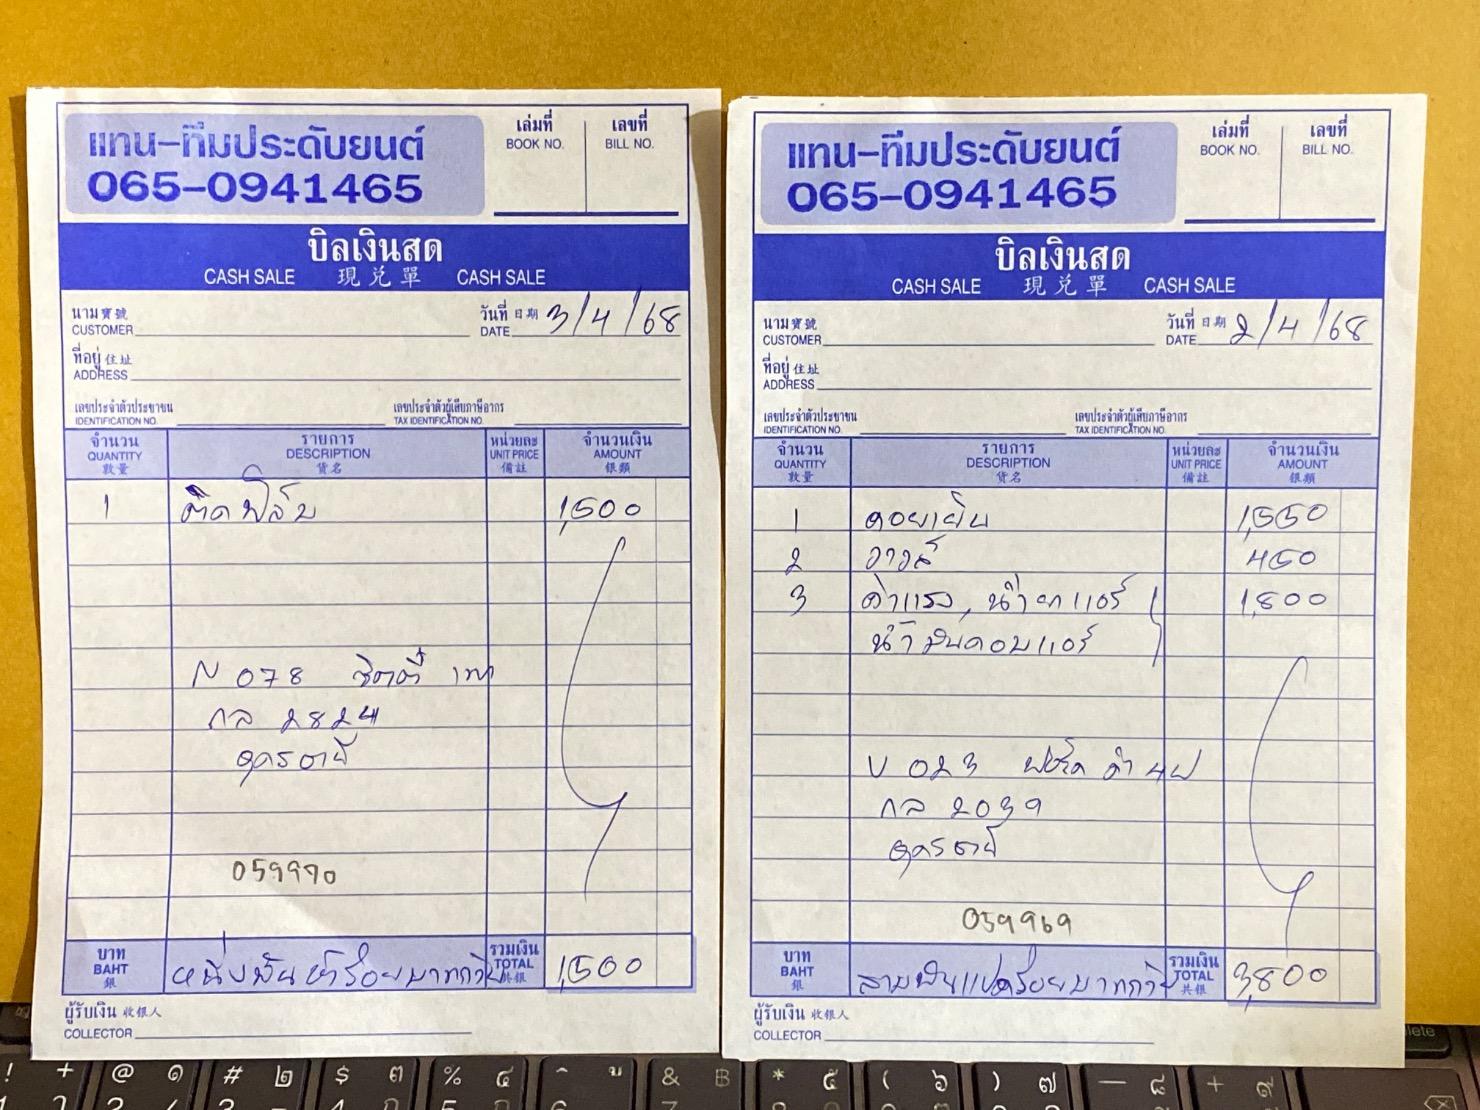 แทน-ทีมประดับยนต์
065-0941465
เล่มที่
BOOK NO.
เลขที่
BILL NO.
บิลเงินสด
CASH SALE 現兌單 CASH SALE
นาม寶號
CUSTOMER
วันที่日期 3/4/68
DATE
ที่อยู่住址
ADDRESS
เลขประจำตัวประชาชน
IDENTIFICATION NO.
เลขประจำตัวผู้เสียภาษีอากร
TAX IDENTIFICATION NO.
จำนวน
QUANTITY
數量
รายการ
DESCRIPTION
貨名
หน่วยละ
UNIT PRICE
備註
จำนวนเงิน
AMOUNT
銀類
1 ติดฟิล์ม 1,500
N 078 ซิตตี้ เทา
กล 2824
อุดรธานี
059970
บาท
BAHT
銀
หนึ่งพันห้าร้อยบาทถ้วน
รวมเงิน
TOTAL
共銀
1,500
ผู้รับเงิน 收銀人
COLLECTOR
แทน-ทีมประดับยนต์
065-0941465
เล่มที่
BOOK NO.
เลขที่
BILL NO.
บิลเงินสด
CASH SALE 現兌單 CASH SALE
นาม寶號
CUSTOMER
วันที่日期 2/4/68
DATE
ที่อยู่住址
ADDRESS
เลขประจำตัวประชาชน
IDENTIFICATION NO.
เลขประจำตัวผู้เสียภาษีอากร
TAX IDENTIFICATION NO.
จำนวน
QUANTITY
數量
รายการ
DESCRIPTION
貨名
หน่วยละ
UNIT PRICE
備註
จำนวนเงิน
AMOUNT
銀類
1 คอยเย็น 1,550
2 วาวล์ 450
3 ค่าแรง, น้ำยาแอร์ 1,800
น้ำมันคอมแอร์
023 ฟอร์ด ดำ 4ป
กล 2039
อุดรธานี
059969
บาท
BAHT
銀
สามพันแปดร้อยบาทถ้วน
รวมเงิน
TOTAL
共銀
3,800
ผู้รับเงิน 收銀人
COLLECTOR
! + @ ๑ # ๒ $ ๓ % ๔ ^ ู & ฿ * ๕ ( ๖ ) ๗ — ๘ + ๙